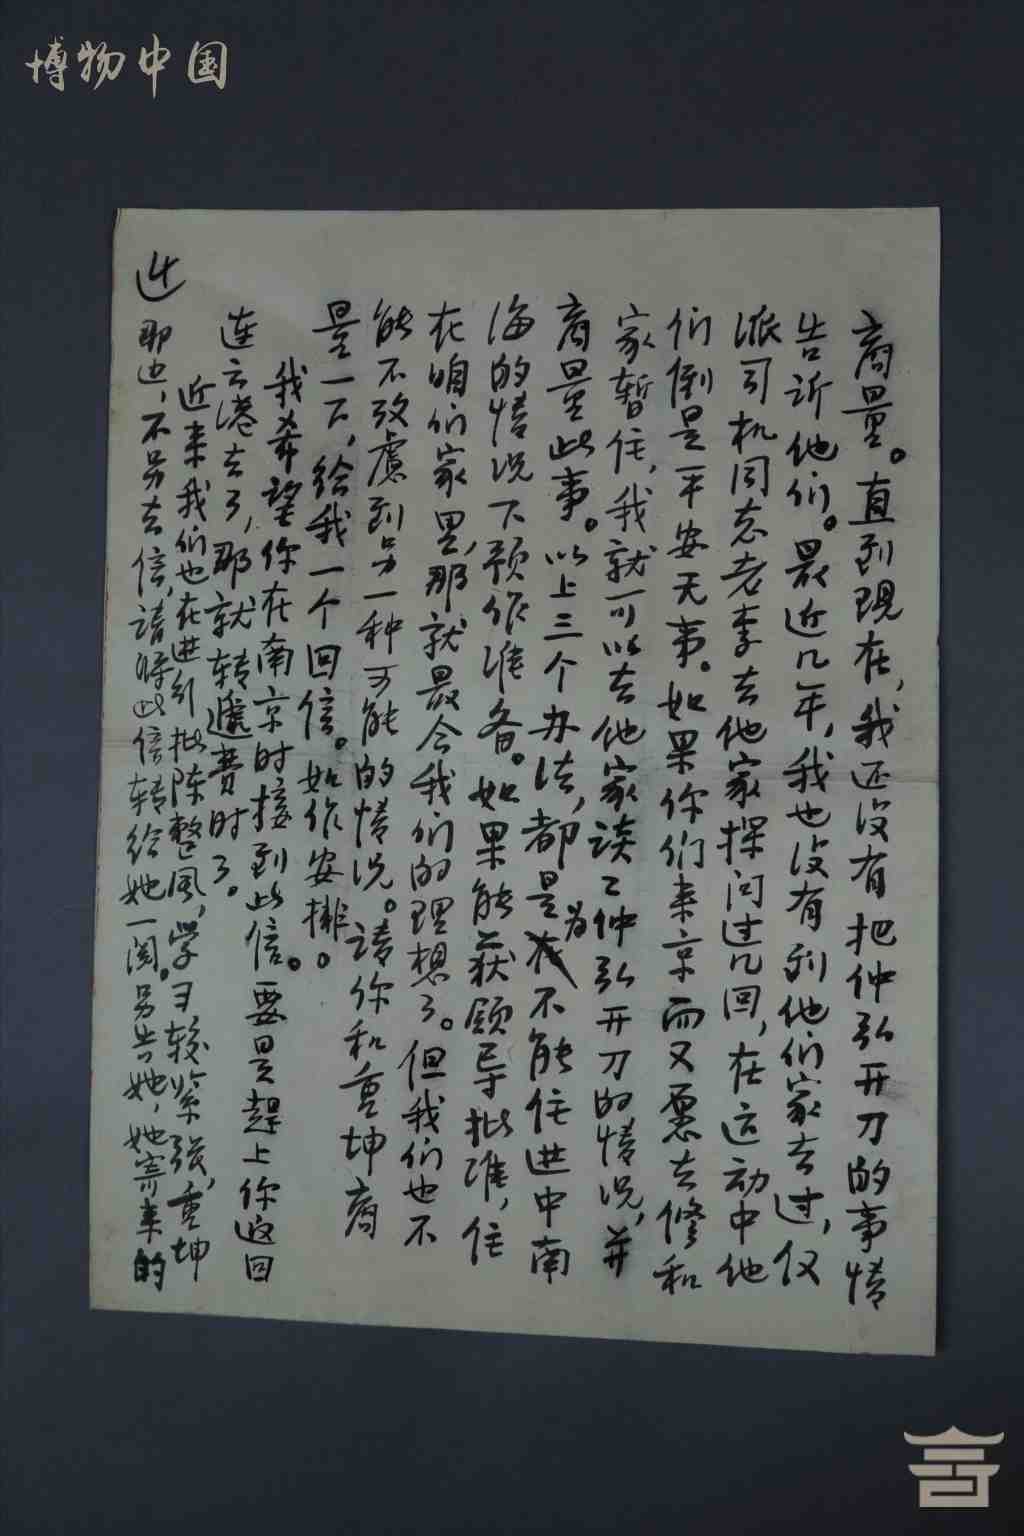 博物中国
商量。直到现在，我还没有把仲弘开刀的事情
告诉他们。最近几年，我也没有到他们家去过，仅
派司机同志老李去他家探问过几回，在运动中他
们倒是平安无事。如果你们来京而又愿去修和
家暂住，我就可以去他家谈谈仲弘开刀的情况，并
商量此事。以上三个办法，都是为不能住进中南
海的情况下预作准备。如果能获领导批准，住
在咱们家里，那就最合我们的理想了。但我们也不
能不考虑到另一种可能的情况。请你和重坤商
量一下，给我一个回信。如作安排。
我希望你在南京时接到此信。要是赶上你返回
连云港去了，那就转递费时了。
近来我们也在进行批陈整风，学习较紧张，重坤
那边，不另去信，请将此信转给她一阅。另告她，她寄来的